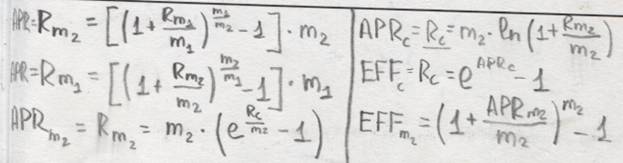 APR=R_{m_2} = [(1+\frac{R_{m_1}}{m_1})^{\frac{m_1}{m_2}} - 1] \cdot m_2
APR=R_{m_1} = [(1+\frac{R_{m_2}}{m_2})^{\frac{m_2}{m_1}} - 1] \cdot m_1
APR_{m_2} = R_{m_2} = m_2 \cdot (e^{\frac{R_c}{m_2}} - 1)
APR_c = R_c = m_2 \cdot ln(1+\frac{R_{m_2}}{m_2})
EFF_c = R_c = e^{APR_c} - 1
EFF_{m_2} = (1+\frac{APR_{m_2}}{m_2})^{m_2} - 1